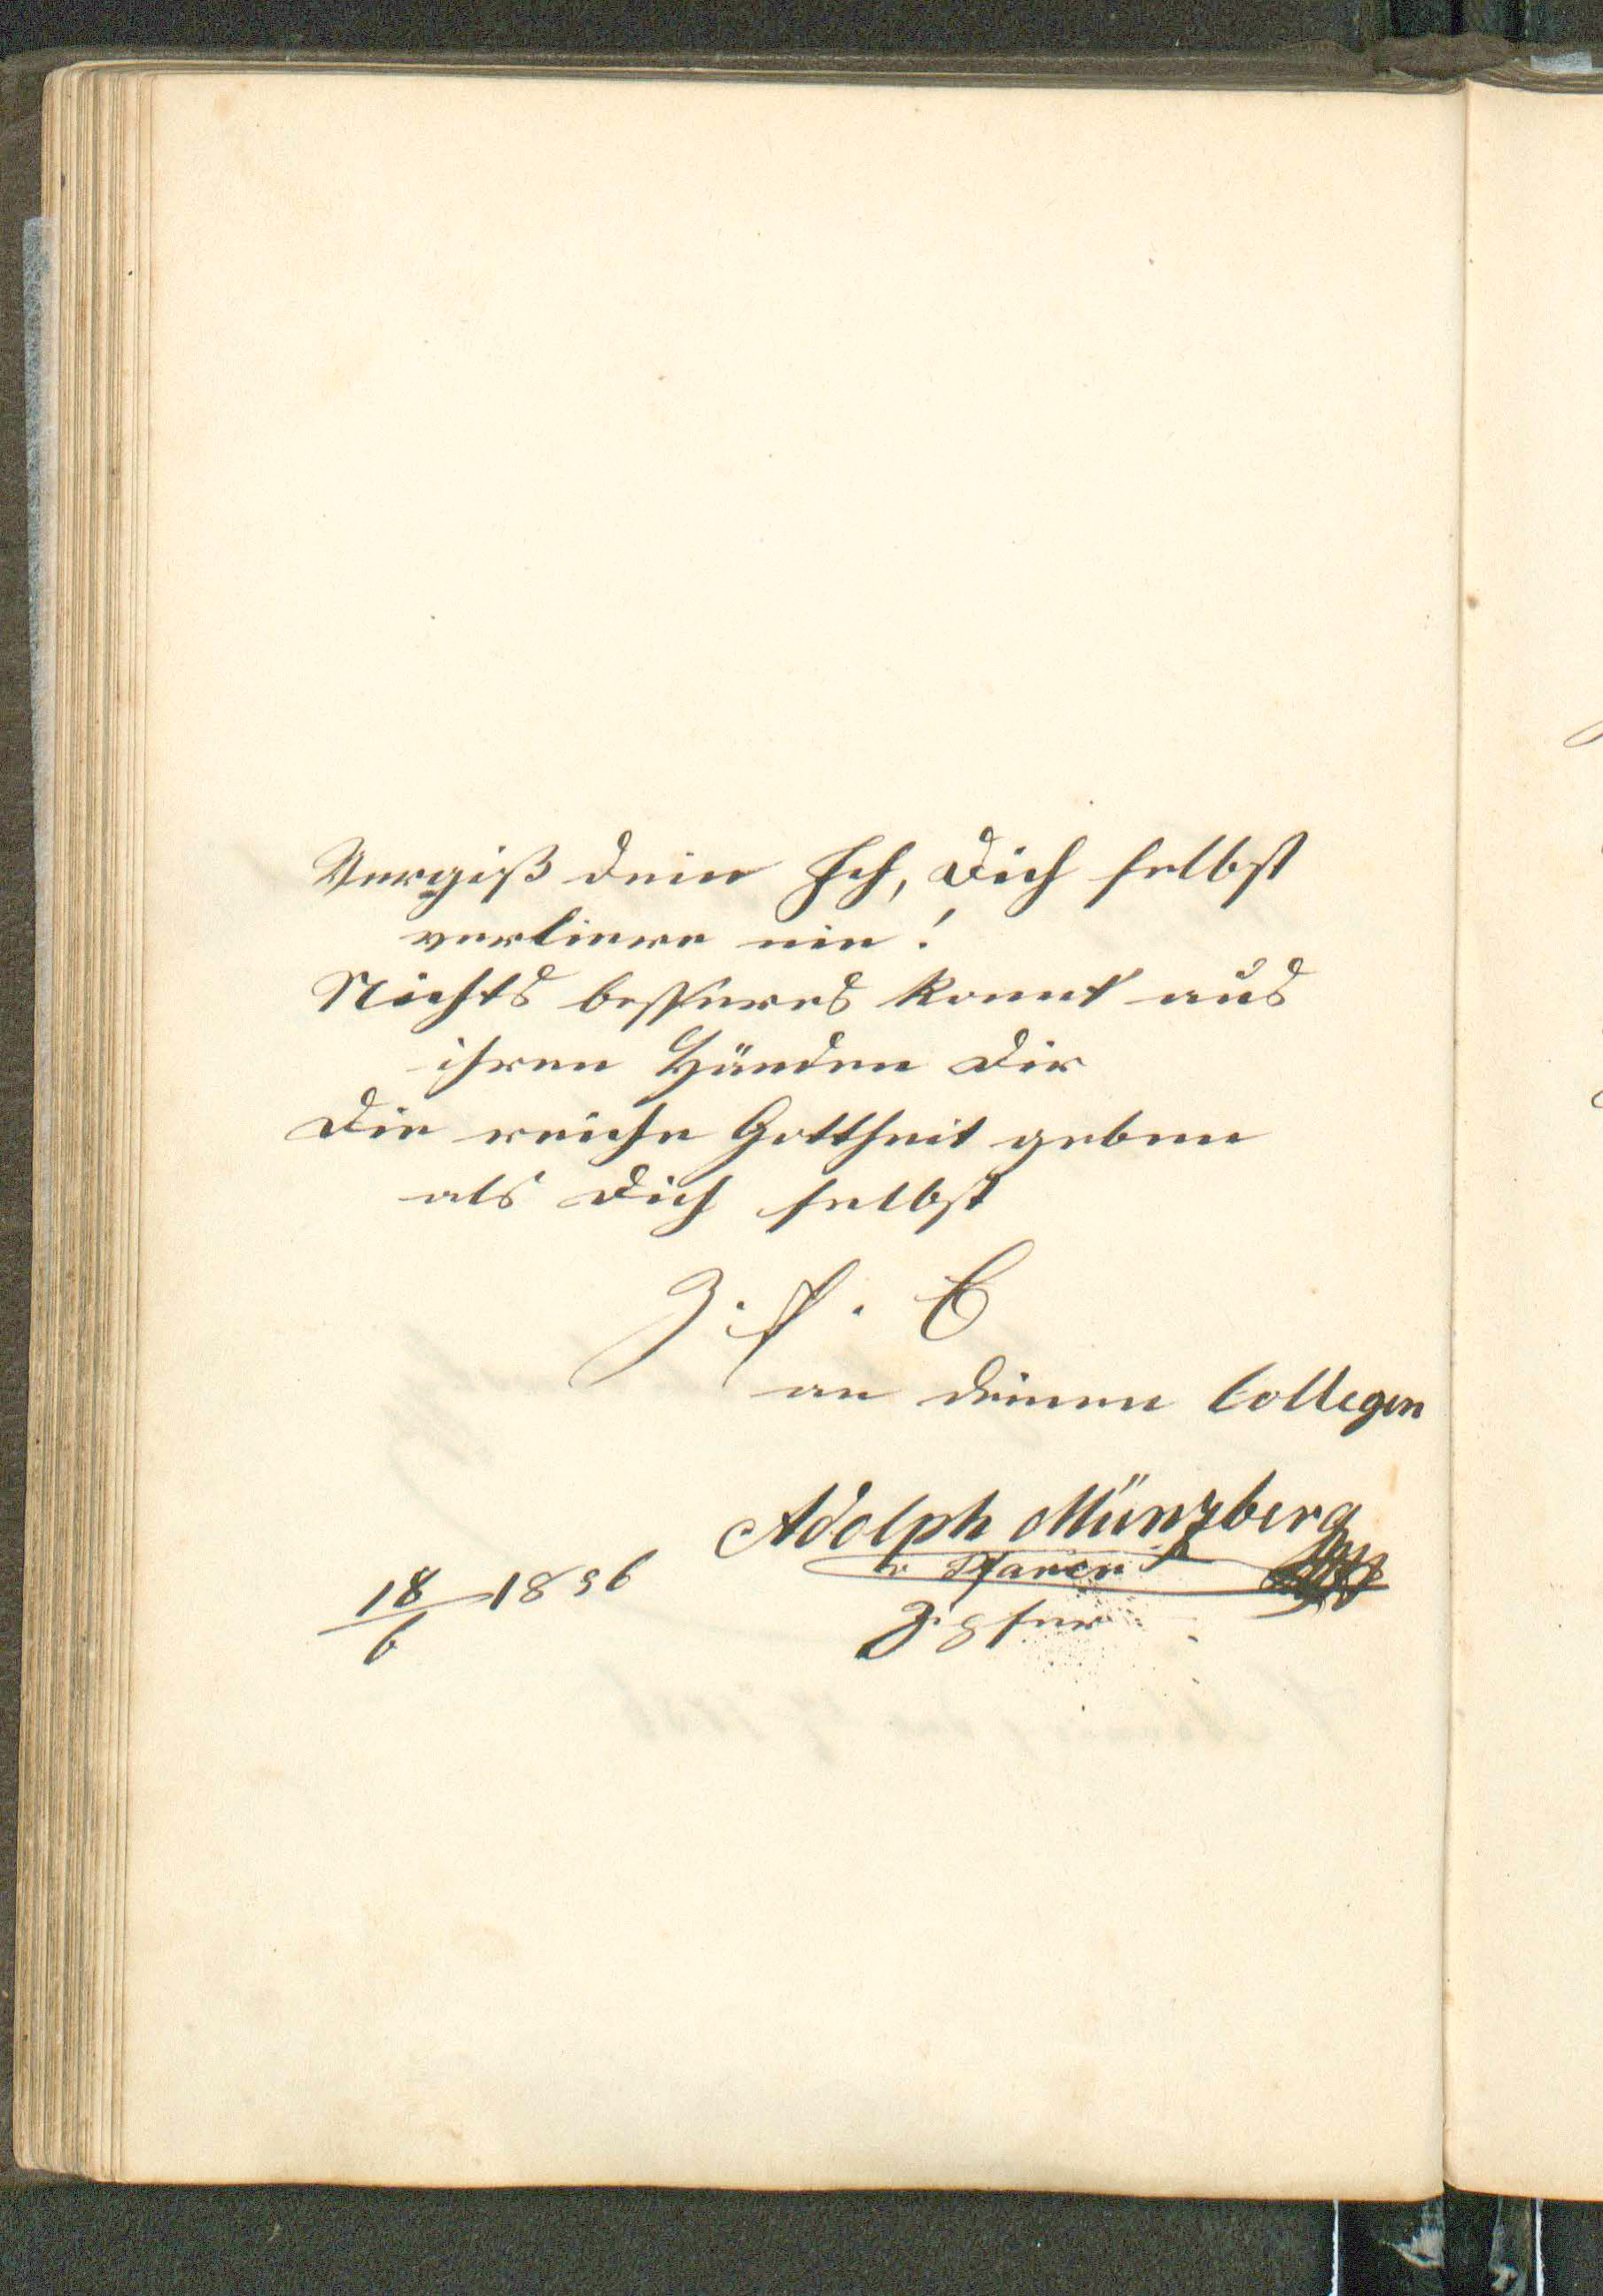 Vergiß dein Ich, Dich selbst
verliere nie!
Nichts besseres konnt aus
ihren Händen Dir
Die reiche Gottheit geben
als Dich selbst
Z. f. E
an deinen Collegen
Adolph Münzberg
18/6 1856